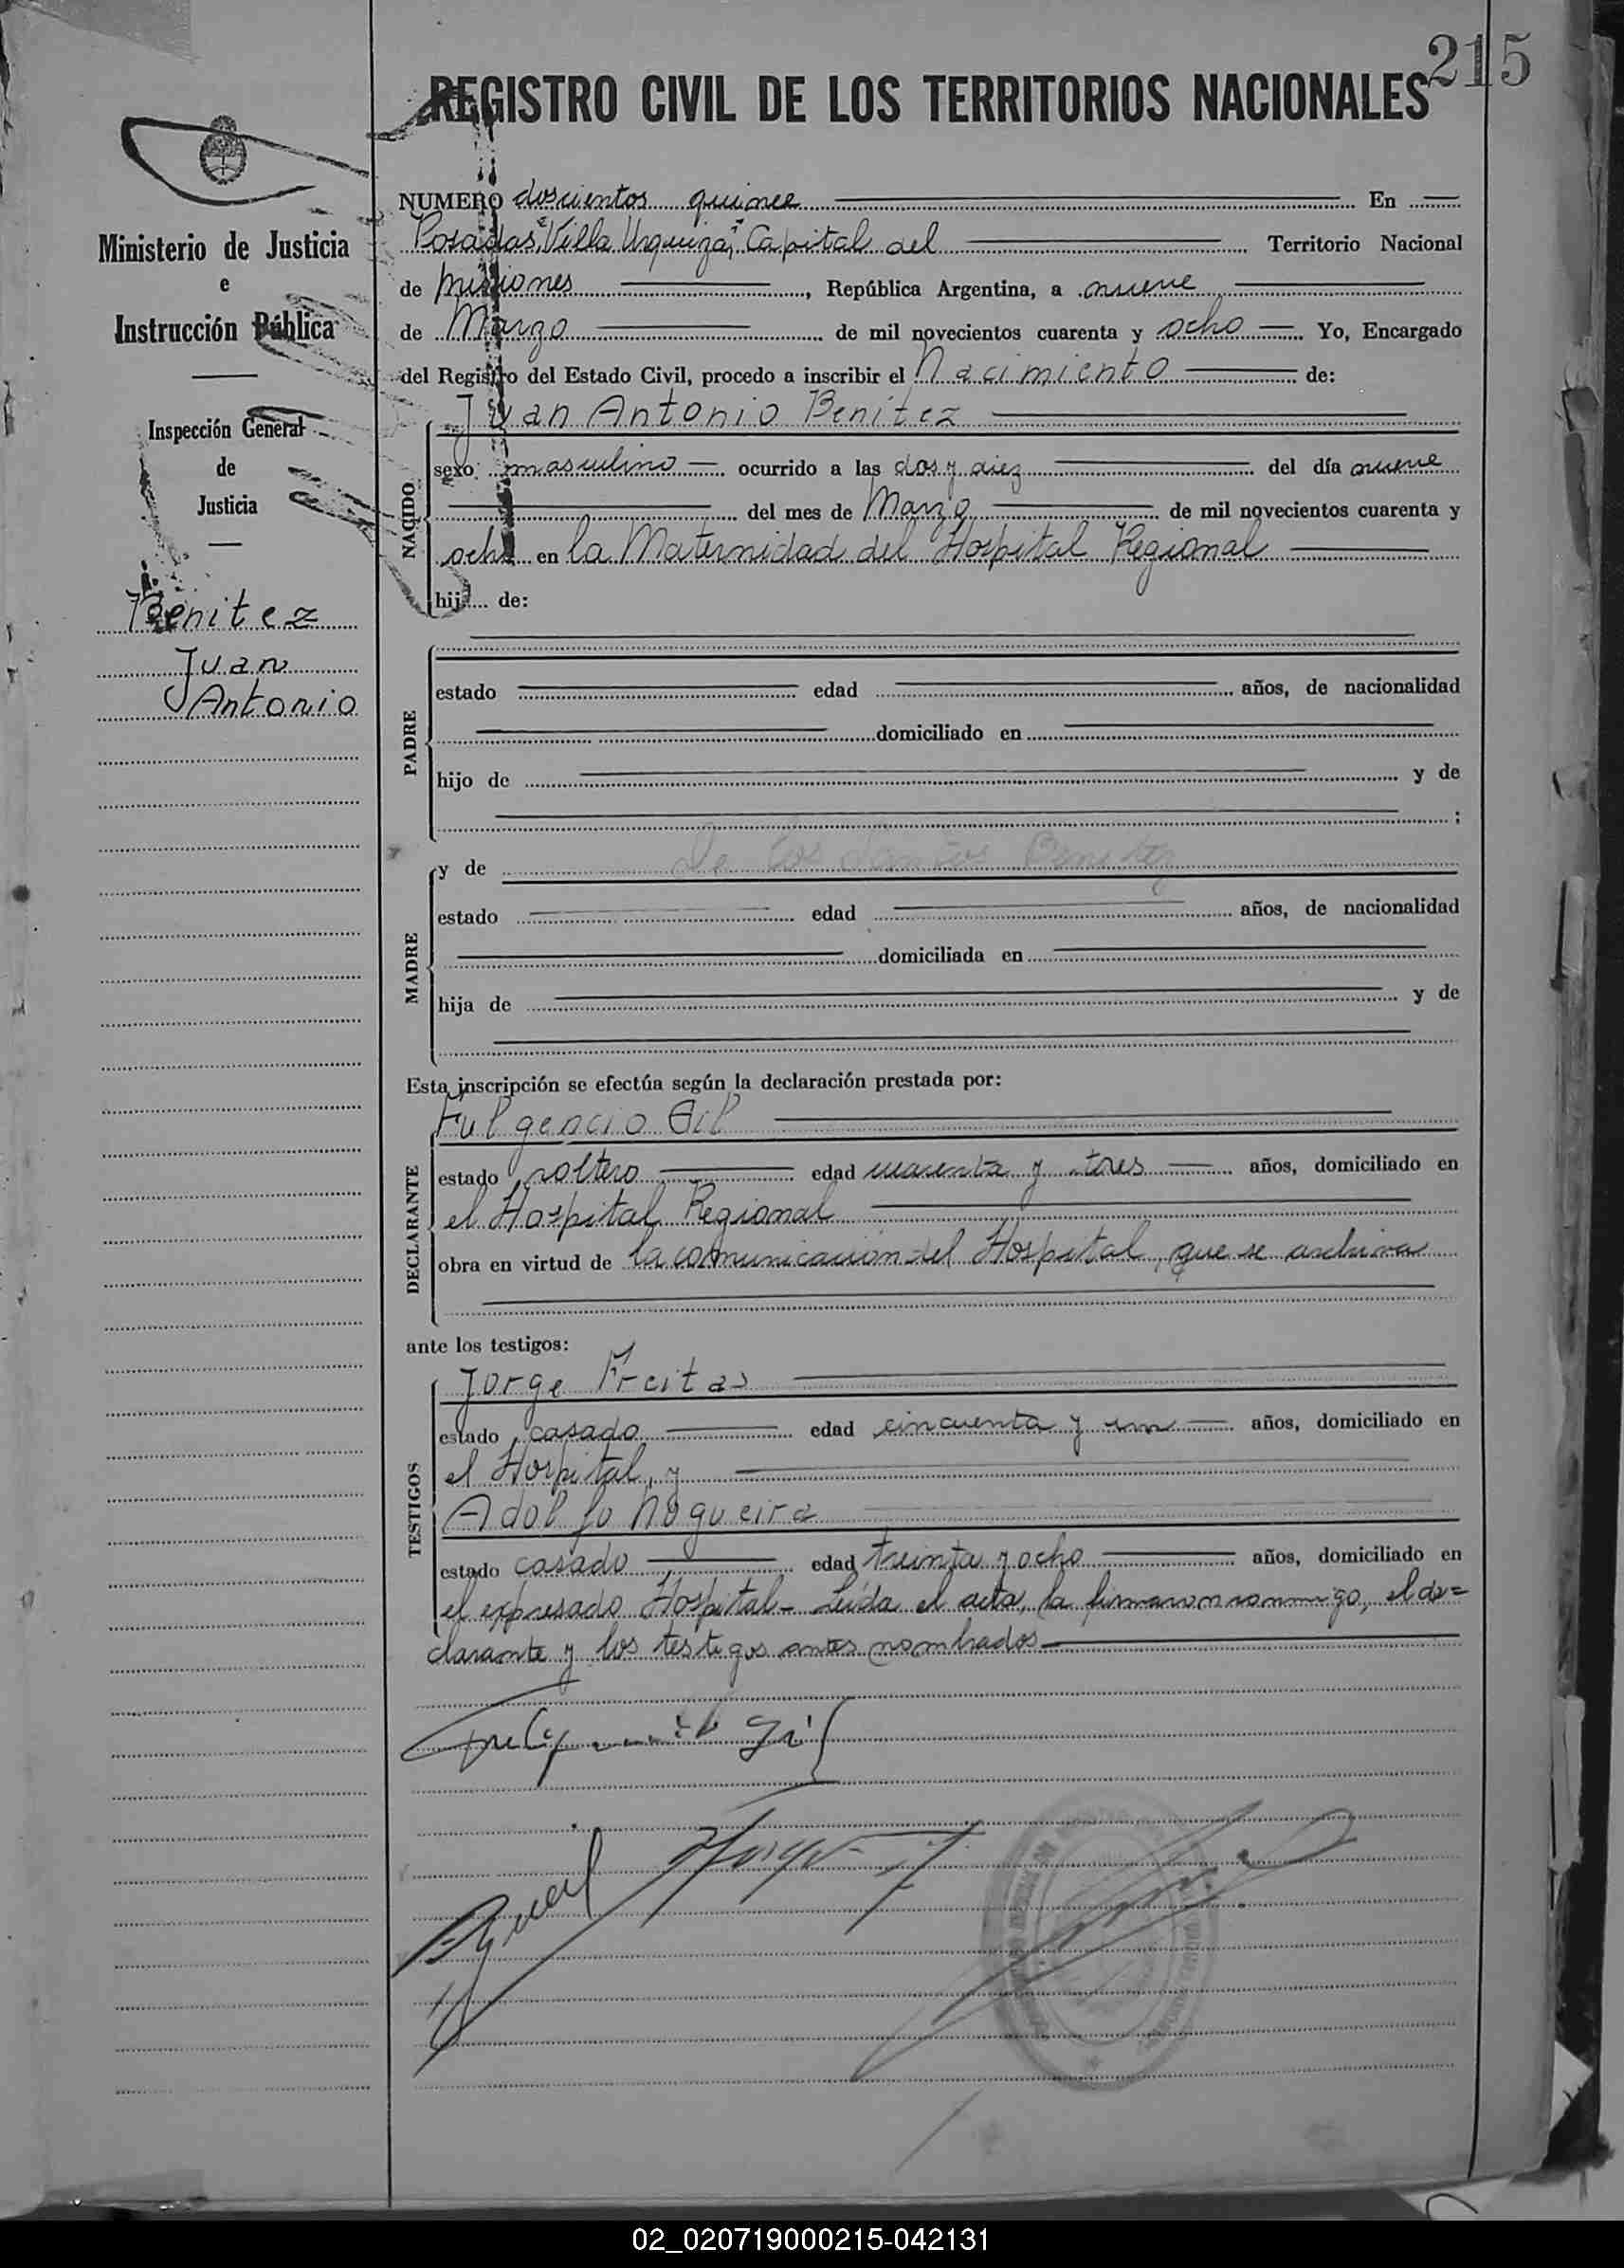 215
REGISTRO CIVIL DE LOS TERRITORIOS NACIONALES
Ministerio de Justicia
e
Instrucción Pública
Inspección General
de
Justicia
Benitez
Juan
Antonio
NUMERO doscientos quince En
Posadas "Villa Urquiza", Capital del Territorio Nacional
de Misiones, República Argentina, a nueve
de Marzo de mil novecientos cuarenta y ocho Yo, Encargado
del Registro del Estado Civil, procedo a inscribir el Nacimiento de:
NACIDO
Juan Antonio Benitez
sexo masculino ocurrido a las dos y diez del día nueve
del mes de Marzo de mil novecientos cuarenta y
ocho en la Maternidad del Hospital Regional
hij de:
PADRE
estado edad años, de nacionalidad
domiciliado en
hijo de y de
;
MADRE
y de De los Santos Benitez
estado edad años, de nacionalidad
domiciliada en
hija de y de
Esta inscripción se efectúa según la declaración prestada por:
DECLARANTE
Fulgencio Gil
estado soltero edad cuarenta y tres años, domiciliado en
el Hospital Regional
obra en virtud de la comunicación del Hospital, que se archiva
ante los testigos:
TESTIGOS
Jorge Freitas
estado casado edad cincuenta y un años, domiciliado en
el Hospital, y
Adolfo Nogueira
estado casado edad treinta y ocho años, domiciliado en
el expresado Hospital - Leída el acta, la firmaron conmigo, el de=
clarante y los testigos antes nombrados
Gil
02_020719000215-042131